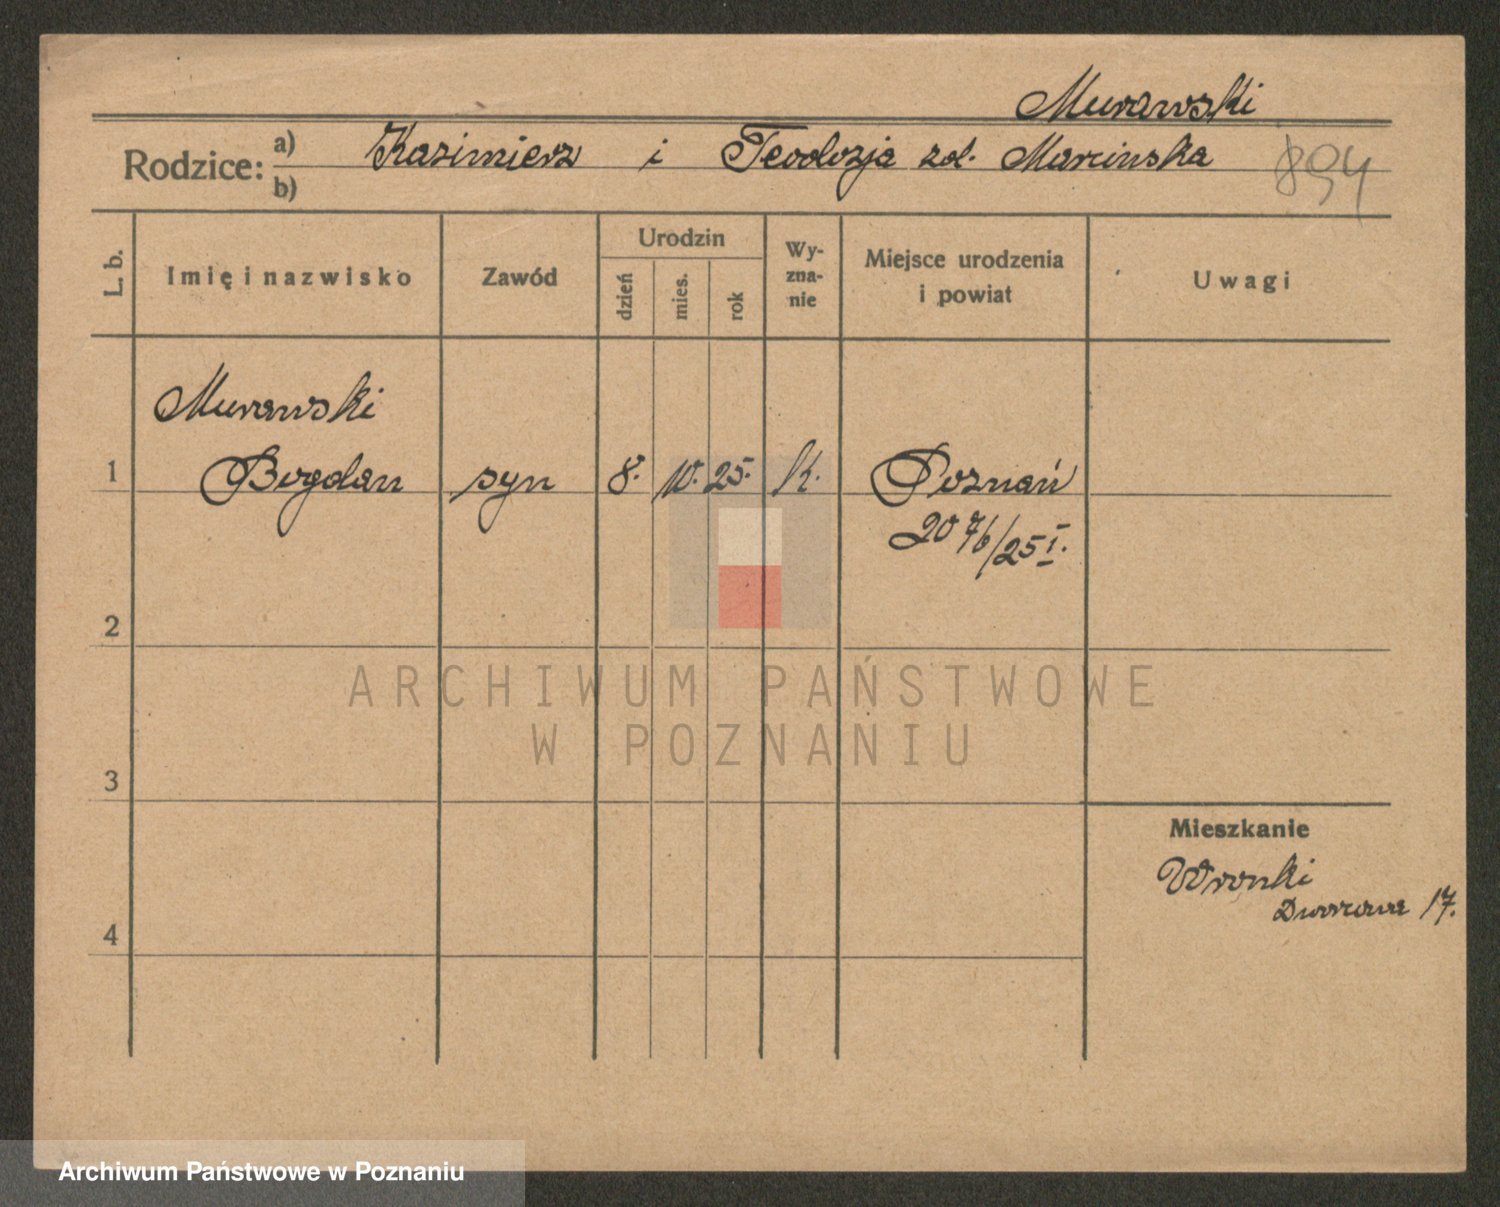 Murawski
Rodzice: a) Kazimierz i Teodozja zd. Marcinska 894
b)
L. b. Imię i nazwisko Zawód Urodzin dzień mies. rok Wy-zna-nie Miejsce urodzenia i powiat Uwagi
Murawski
1 Bogdan syn 8. 10. 25. k. Poznań
2076/25 I.
2
ARCHIWUM PAŃSTWOWE
W POZNANIU
3
Mieszkanie
Wronki
Dworcowa 17.
4
Archiwum Państwowe w Poznaniu